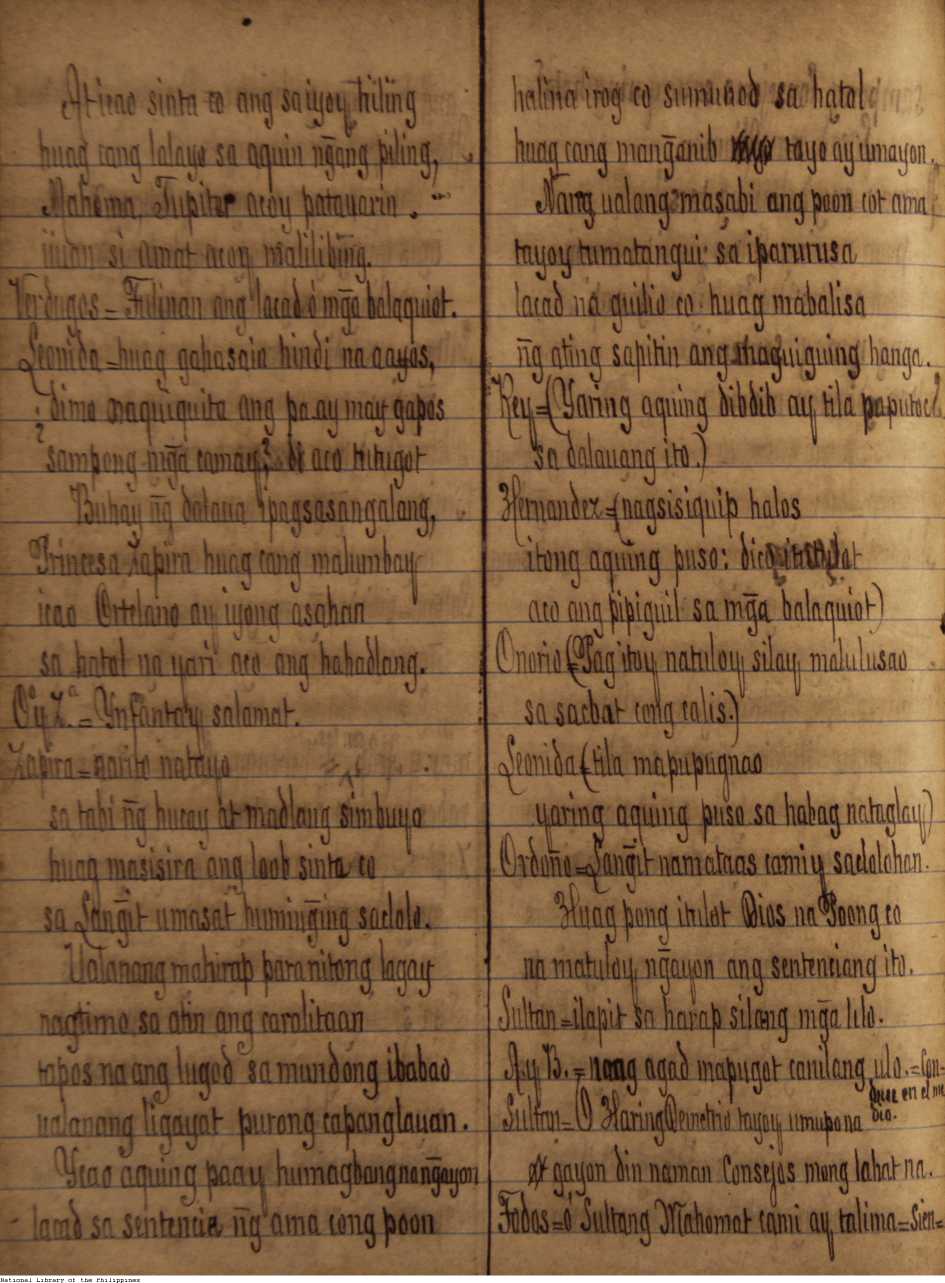 At icao sinta co ang sa iyoy hiling
huag cang lalayo sa aquin ng̃ang piling,
Mahoma, Jupiter acoy patauarin
iuan si amat acoy malilibing.
Verdugos = Fulinan ang lacad ó mg̃a balaquiot.
Leonida = huag gahasain hindi na aayos,
¿dimo naquiquita ang pa ay may gapos
sampong mg̃a camay? di aco huhigot
Buhay ng̃ dalaua ipagsasangalang,
Princesa Xapira huag cang malumbay
icao Ortelano ay iyong asahan
sa hatol na yari aco ang hahadlang.
O.ª y Z.ª = Ynfantay salamat.
Xapira = narito natayo
sa tabi ng̃ hucay at madlang simbuyo
huag masisira ang loob sinta co
sa Lang̃it umasat huming̃ing saclolo.
Ualanang mahirap para nitong lagay
nagtimo sa atin ang carolitaan
tapos na ang lugod sa mundong ibabao
ualanang ligayat purong capanglauan.
Ycao aquing paay humagbang na ng̃ayon
lacad sa sentencia ng̃ ama cong poon
halina irog co sumunod sa hatol
huag cang mang̃anib tayo ay umayon.
Nang ualang masabi ang poon cot ama
tayoy tumatangui sa iparurusa
lacad na guilio co huag mabalisa
ng̃ ating sapitin ang maguiguing hanga.
Key = (Yaring aquing dibdib ay tila paputoc
sa dalauang ito.)
Hernandez = (nagsisiquip halos
itong aquing puso: dico
aco ang pipiguil sa mg̃a balaquiot)
Onorio (= Pag itoy natuloy silay malulusao
sa sacbat cong calis.)
Leonida (= tila mapupugnao
yaring aquing puso sa habag nataglay)
Ordoño = Lang̃it namataas camiy saclolohan.
Huag pong itulot Dios na Poong co
na matuloy ng̃ayon ang sentenciang ito.
Sultan = ilapit sa harap silang mg̃a lilo.
A. y B. = nang agad mapugot canilang ulo. = Con-
duce en el me
dio.
Sultan = O Haring Demetrio tayoy umupo na
gayon din naman Consejos mong lahat na.
Todos = ó Sultang Mahomat cami ay talima = Sien=
National Library of the Philippines